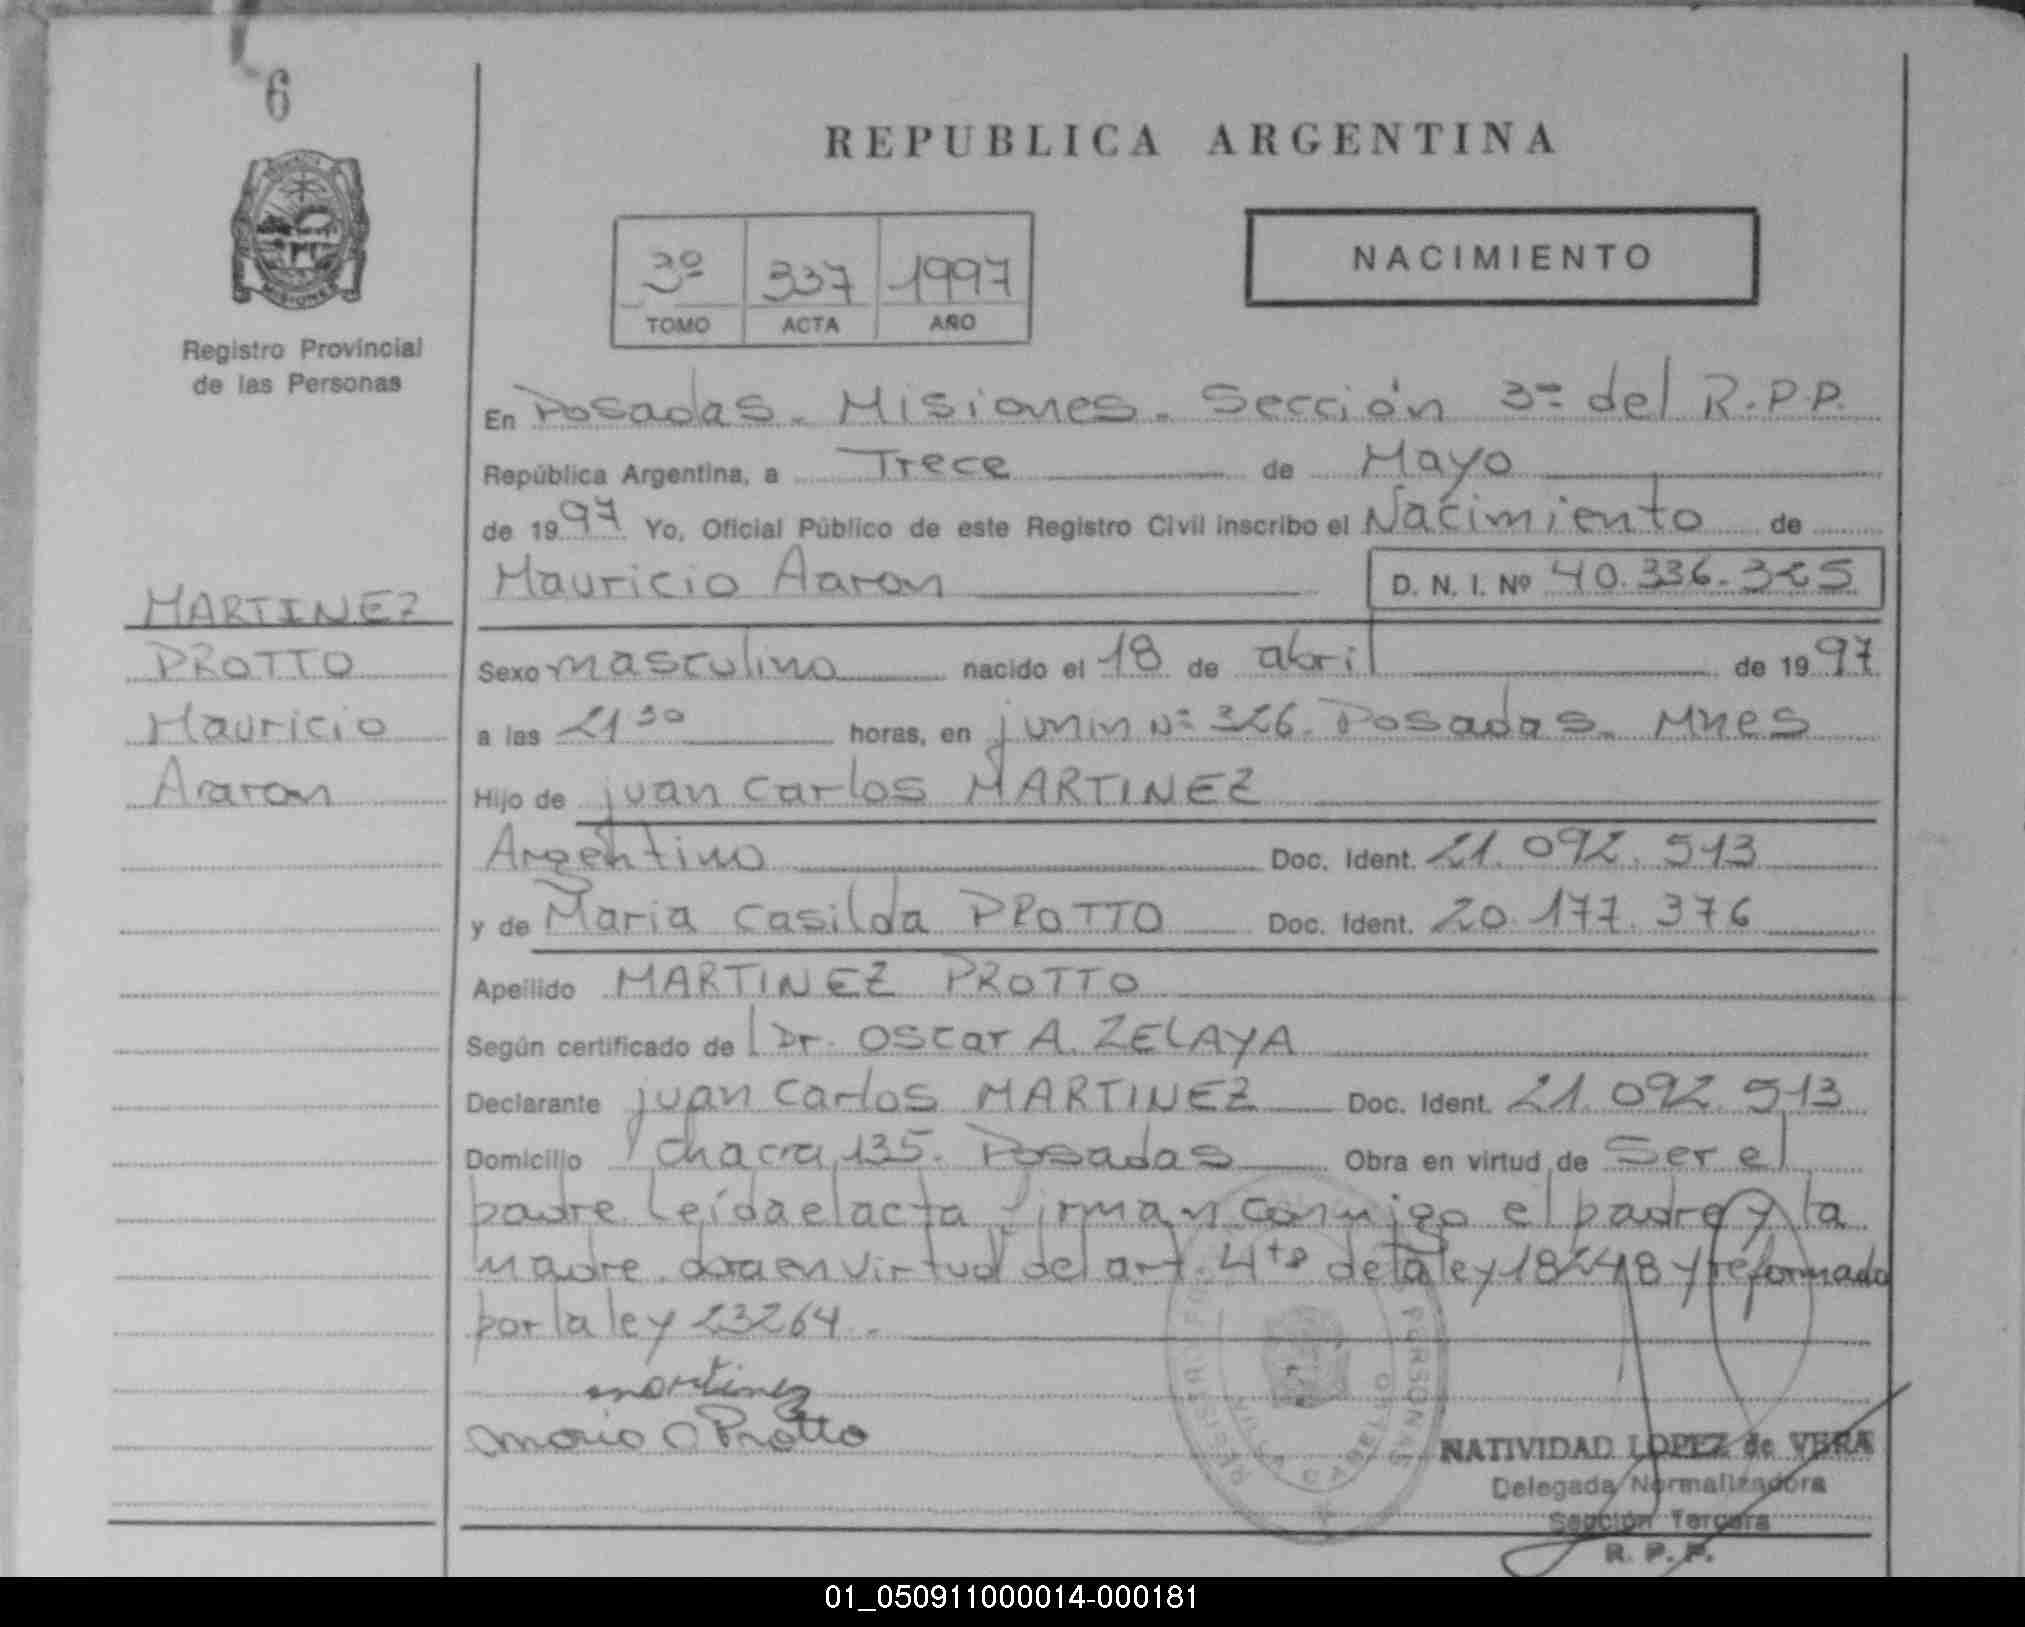 6
REPUBLICA ARGENTINA
MISIONES
Registro Provincial
de las Personas
3º 337 1997
TOMO ACTA AÑO
NACIMIENTO
En Posadas - Misiones - Sección 3ª del R.P.P.
República Argentina, a Trece de Mayo
de 1997 Yo, Oficial Público de este Registro Civil inscribo el Nacimiento de
Mauricio Aaron D. N. I. Nº 40.336.325
MARTINEZ
PROTTO
Mauricio
Aaron
Sexo masculino nacido el 18 de abril de 1997
a las 21 30 horas, en junin Nº 326. Posadas. Mnes
Hijo de juan carlos MARTINEZ
Argentino Doc. Ident. 21. 092. 513
y de Maria Casilda PROTTO Doc. Ident. 20. 177. 376
Apellido MARTINEZ PROTTO
Según certificado de Dr. Oscar A. ZELAYA
Declarante juan Carlos MARTINEZ Doc. Ident. 21. 092. 513
Domicilio chacra 135. Posadas Obra en virtud de Ser el
padre. Leída el acta firman conmigo el padre y la
madre. en virtud del art. 4to de la ley 18248 y reformado
por la ley 23264.-
martinez
maria C Protto
NATIVIDAD LOPEZ de VERA
Delegada Normalizadora
Sección Tercera
R. P. P.
01_050911000014-000181